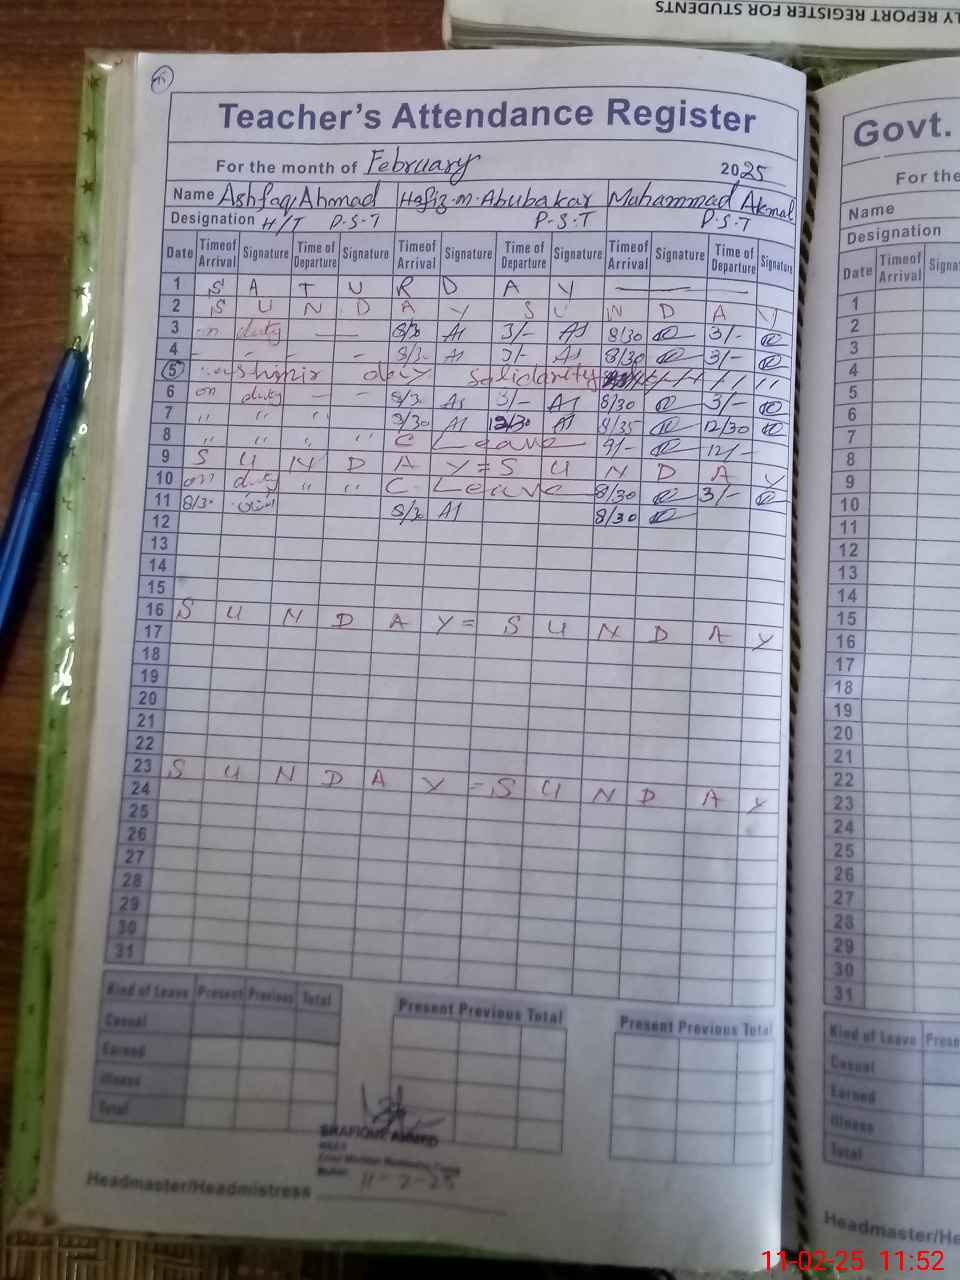 LY REPORT REGISTER FOR STUDENTS
Teacher's Attendance Register
For the month of February 2025
Name Ashfaq Ahmad Hafiz M. Abubakar Muhammad Akmal
Designation H/T P.S.T P.S.T P.S.T
Date Time of Arrival Signature Time of Departure Signature Time of Arrival Signature Time of Departure Signature Time of Arrival Signature Time of Departure Signature
1 S A T U R D A Y
2 S U N D A Y S U N D A Y
3 on duty — — 8/30 3/- 8/30 3/-
4 3/- 8/30 3/-
5 Kashmir day solidarity
6 on duty — — 8/30 3/- 8/30 3/-
7 " " " 8/30 12/30 8/35 12/30
8 " " " " C Leave 9/- 12/-
9 S U N D A Y = S U N D A Y
10 on duty " " C. Leave 8/30 3/-
11 8/30 8/30 8/30
12
13
14
15
16 S U N D A Y = S U N D A Y
17
18
19
20
21
22
23 S U N D A Y = S U N D A Y
24
25
26
27
28
29
30
31
Kind of Leave Present Previous Total Present Previous Total Present Previous Total
Casual
Earned
Illness
Total
SHAFIQUE AHMED
11-2-25
Headmaster/Headmistress
Govt.
For the
Name
Designation
Date Time of Arrival Signa
1
2
3
4
5
6
7
8
9
10
11
12
13
14
15
16
17
18
19
20
21
22
23
24
25
26
27
28
29
30
31
Kind of Leave Prese
Casual
Earned
Illness
Total
Headmaster/He
11-02-25 11:52